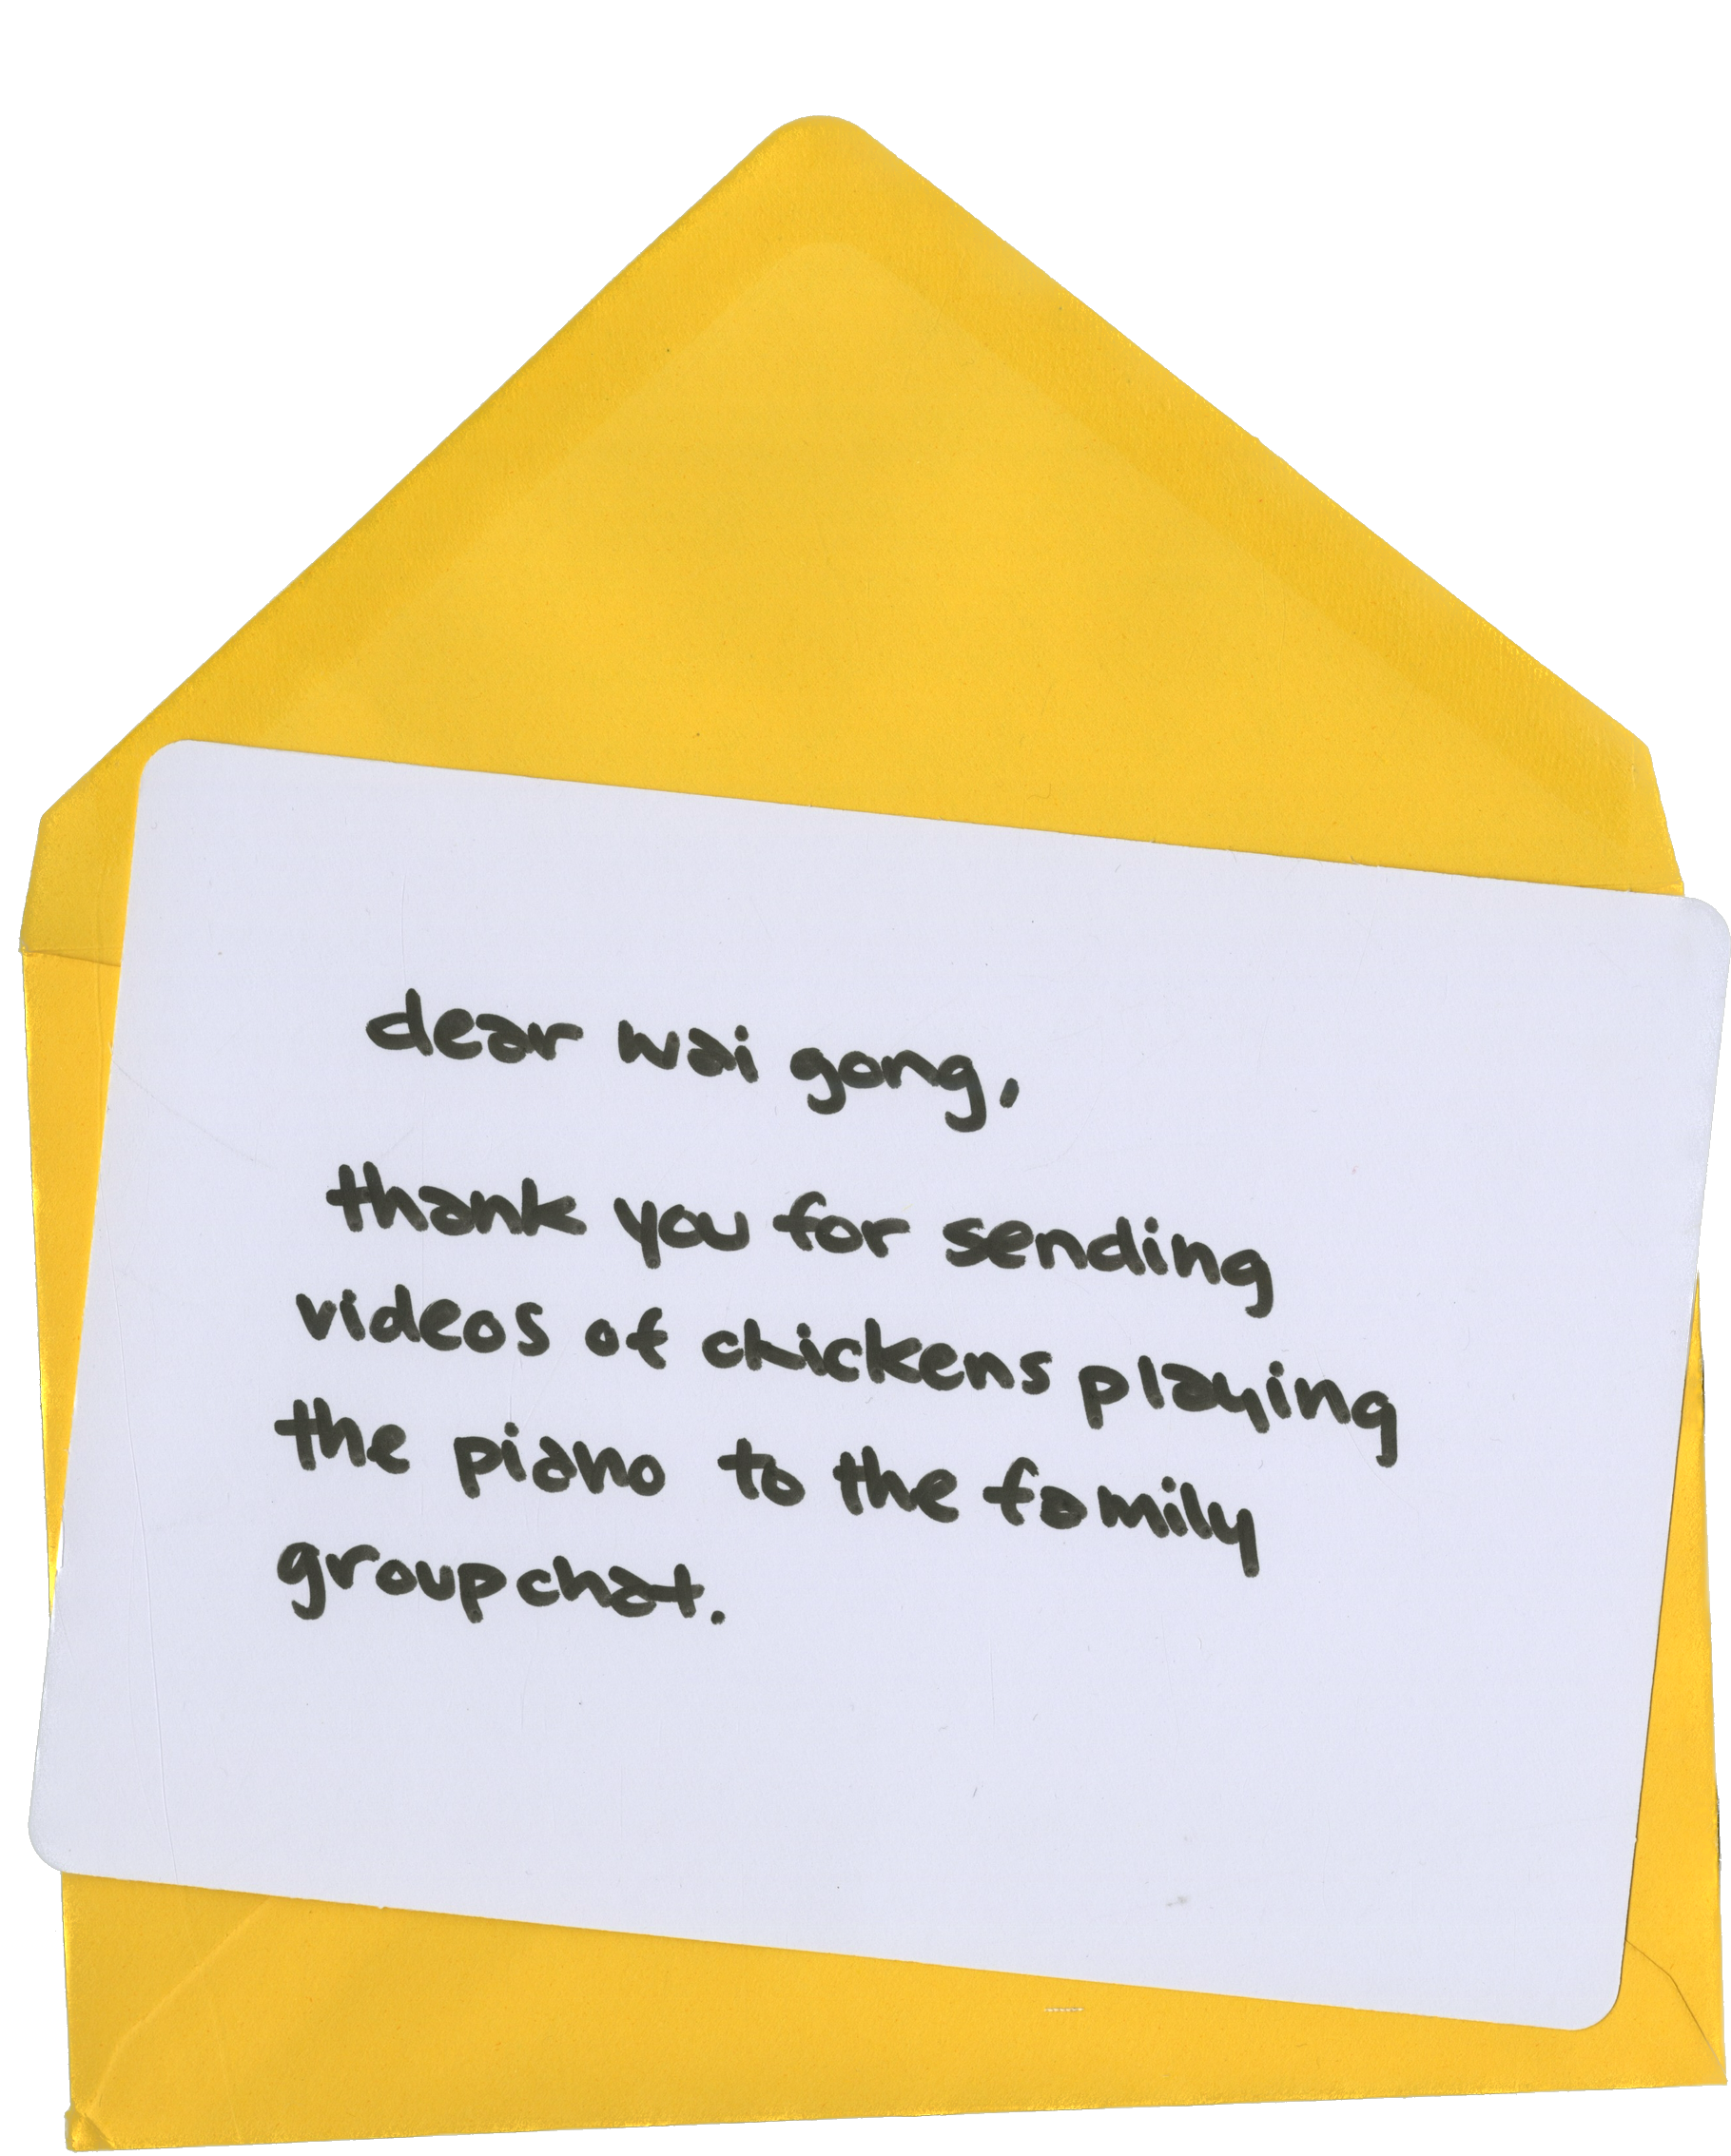 dear wai gong,
thank you for sending
videos of chickens playing
the piano to the family
groupchat.